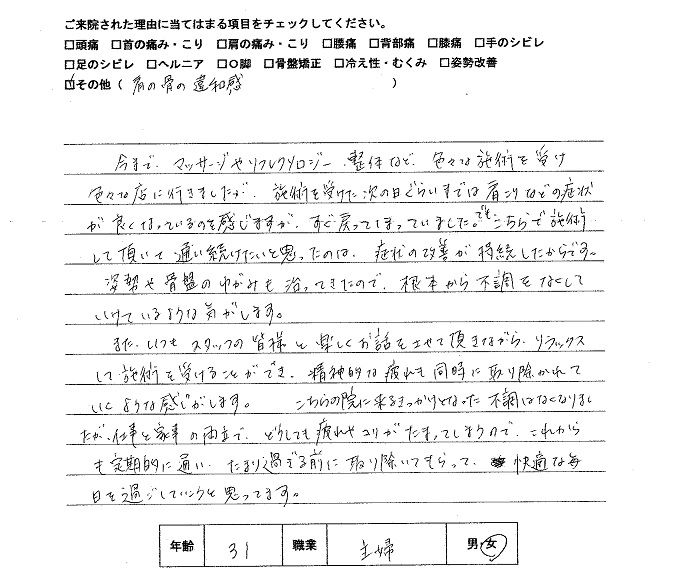 ご来院された理由に当てはまる項目をチェックしてください。
□頭痛 □首の痛み・こり □肩の痛み・こり □腰痛 □背部痛 □膝痛 □手のシビレ
□足のシビレ □ヘルニア □O脚 □骨盤矯正 □冷え性・むくみ □姿勢改善
☑その他（ 肩の骨の違和感 ）
今まで、マッサージやリフレクソロジー、整体など、色々な施術を受け
色々な店に行きましたが、施術を受けた次の日ぐらいまでは肩こりなどの症状
が良くなっているのを感じますが、すぐ戻ってしまっていました。でもこちらで施術
して頂いて通い続けたいと思ったのは、症状の改善が持続したからです。
姿勢や骨盤のゆがみも治ってきたので、根本から不調をなくして
いけているような気がします。
また、いつもスタッフの皆様と楽しくお話をさせて頂きながら、リラックス
して施術を受けることができ、精神的な疲れも同時に取り除かれて
いくような感じがします。 こちらの院に来るきっかけとなった不調はなくなりまし
たが、仕事と家事の両立で、どうしても疲れやコリがたまってしまうので、これから
も定期的に通い、たまり過ぎる前に取り除いてもらって、快適な毎
日を過ごしていこうと思ってます。
年齢 31 職業 主婦 男・女